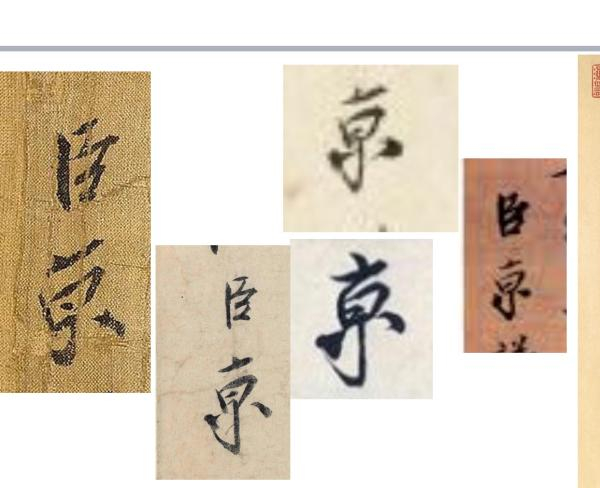 臣
京
臣
京
京
京
臣
京